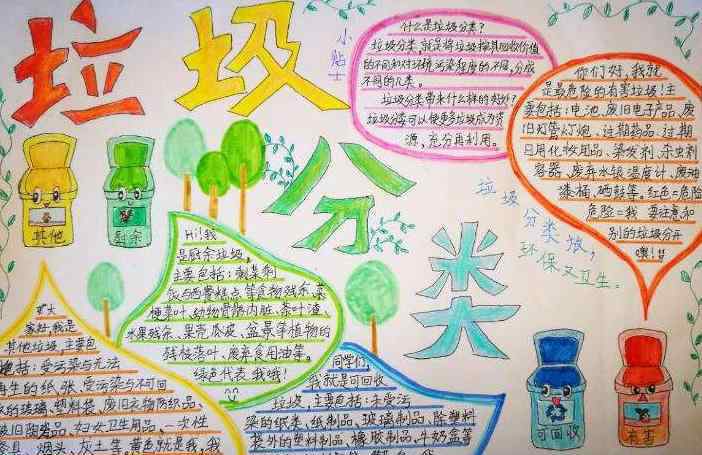 垃圾
分
类
小贴士
什么是垃圾分类?
垃圾分类,就是将垃圾按其回收价值
的不同和对环境污染程度的不同,分成
不同的几类。
垃圾分类带来什么样的
垃圾分类可以使更多垃圾成为资
源,充分再利用。
你们好,我就
是最危险的有害垃圾!主
要包括:电池、废旧电子产品、废
旧灯管灯炮、过期药品、过期
日用化妆用品、染发剂、杀虫剂
容器、废弃水银温度计、废油
漆桶、硒鼓等。红色=危险
危险=我 要注意和
别的垃圾分开
噢!!
垃圾
分类放,
环保又卫生。
其他
厨余
Hi!我
是厨余垃圾,
主要包括:剩菜剩
饭与西餐糕点等食物残余、菜
梗菜叶、动物骨骼内脏、茶叶渣、
水果残余、果壳瓜皮、盆景等植物的
残枝落叶、废弃食用油等。
绿色代表我哦!
大
家好,我是
其他垃圾,主要包
括:受污染与无法
再生的纸张、受污染与不可回
的玻璃、塑料袋、废旧衣物防织品、
破旧陶瓷品、妇女卫生用品、一次性
餐具、烟头、灰土等,黄色就是我,我
同学们,
我就是可回收
垃圾,主要包括:未受污
染的纸类、纸制品、玻璃制品、除塑料
袋外的塑料制品、橡胶制品、牛奶盒等
可回收
有害